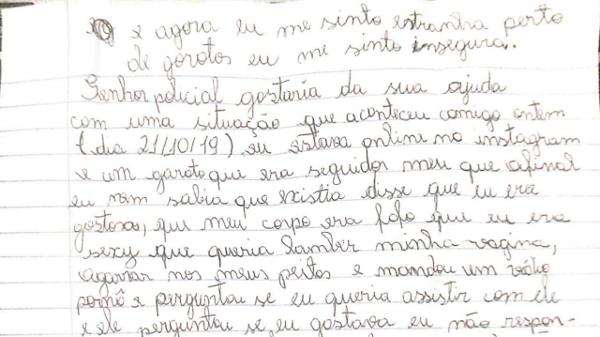 e agora eu me sinto estranha perto
de garotos eu me sinto insegura.
Senhor policial gostaria da sua ajuda
com uma situação que aconteceu comigo ontem
(dia 21/10/19) eu estava online no instagram
e um garoto que era seguidor meu que afinal
eu nem sabia que existia disse que eu era
gostosa, que meu corpo era fofo que eu era
sexy que queria lamber minha vagina,
agarrar nos meus peitos e mandou um vídeo
pornô e perguntou se eu queria assistir com ele
e ele perguntou se eu gostava eu não respon-